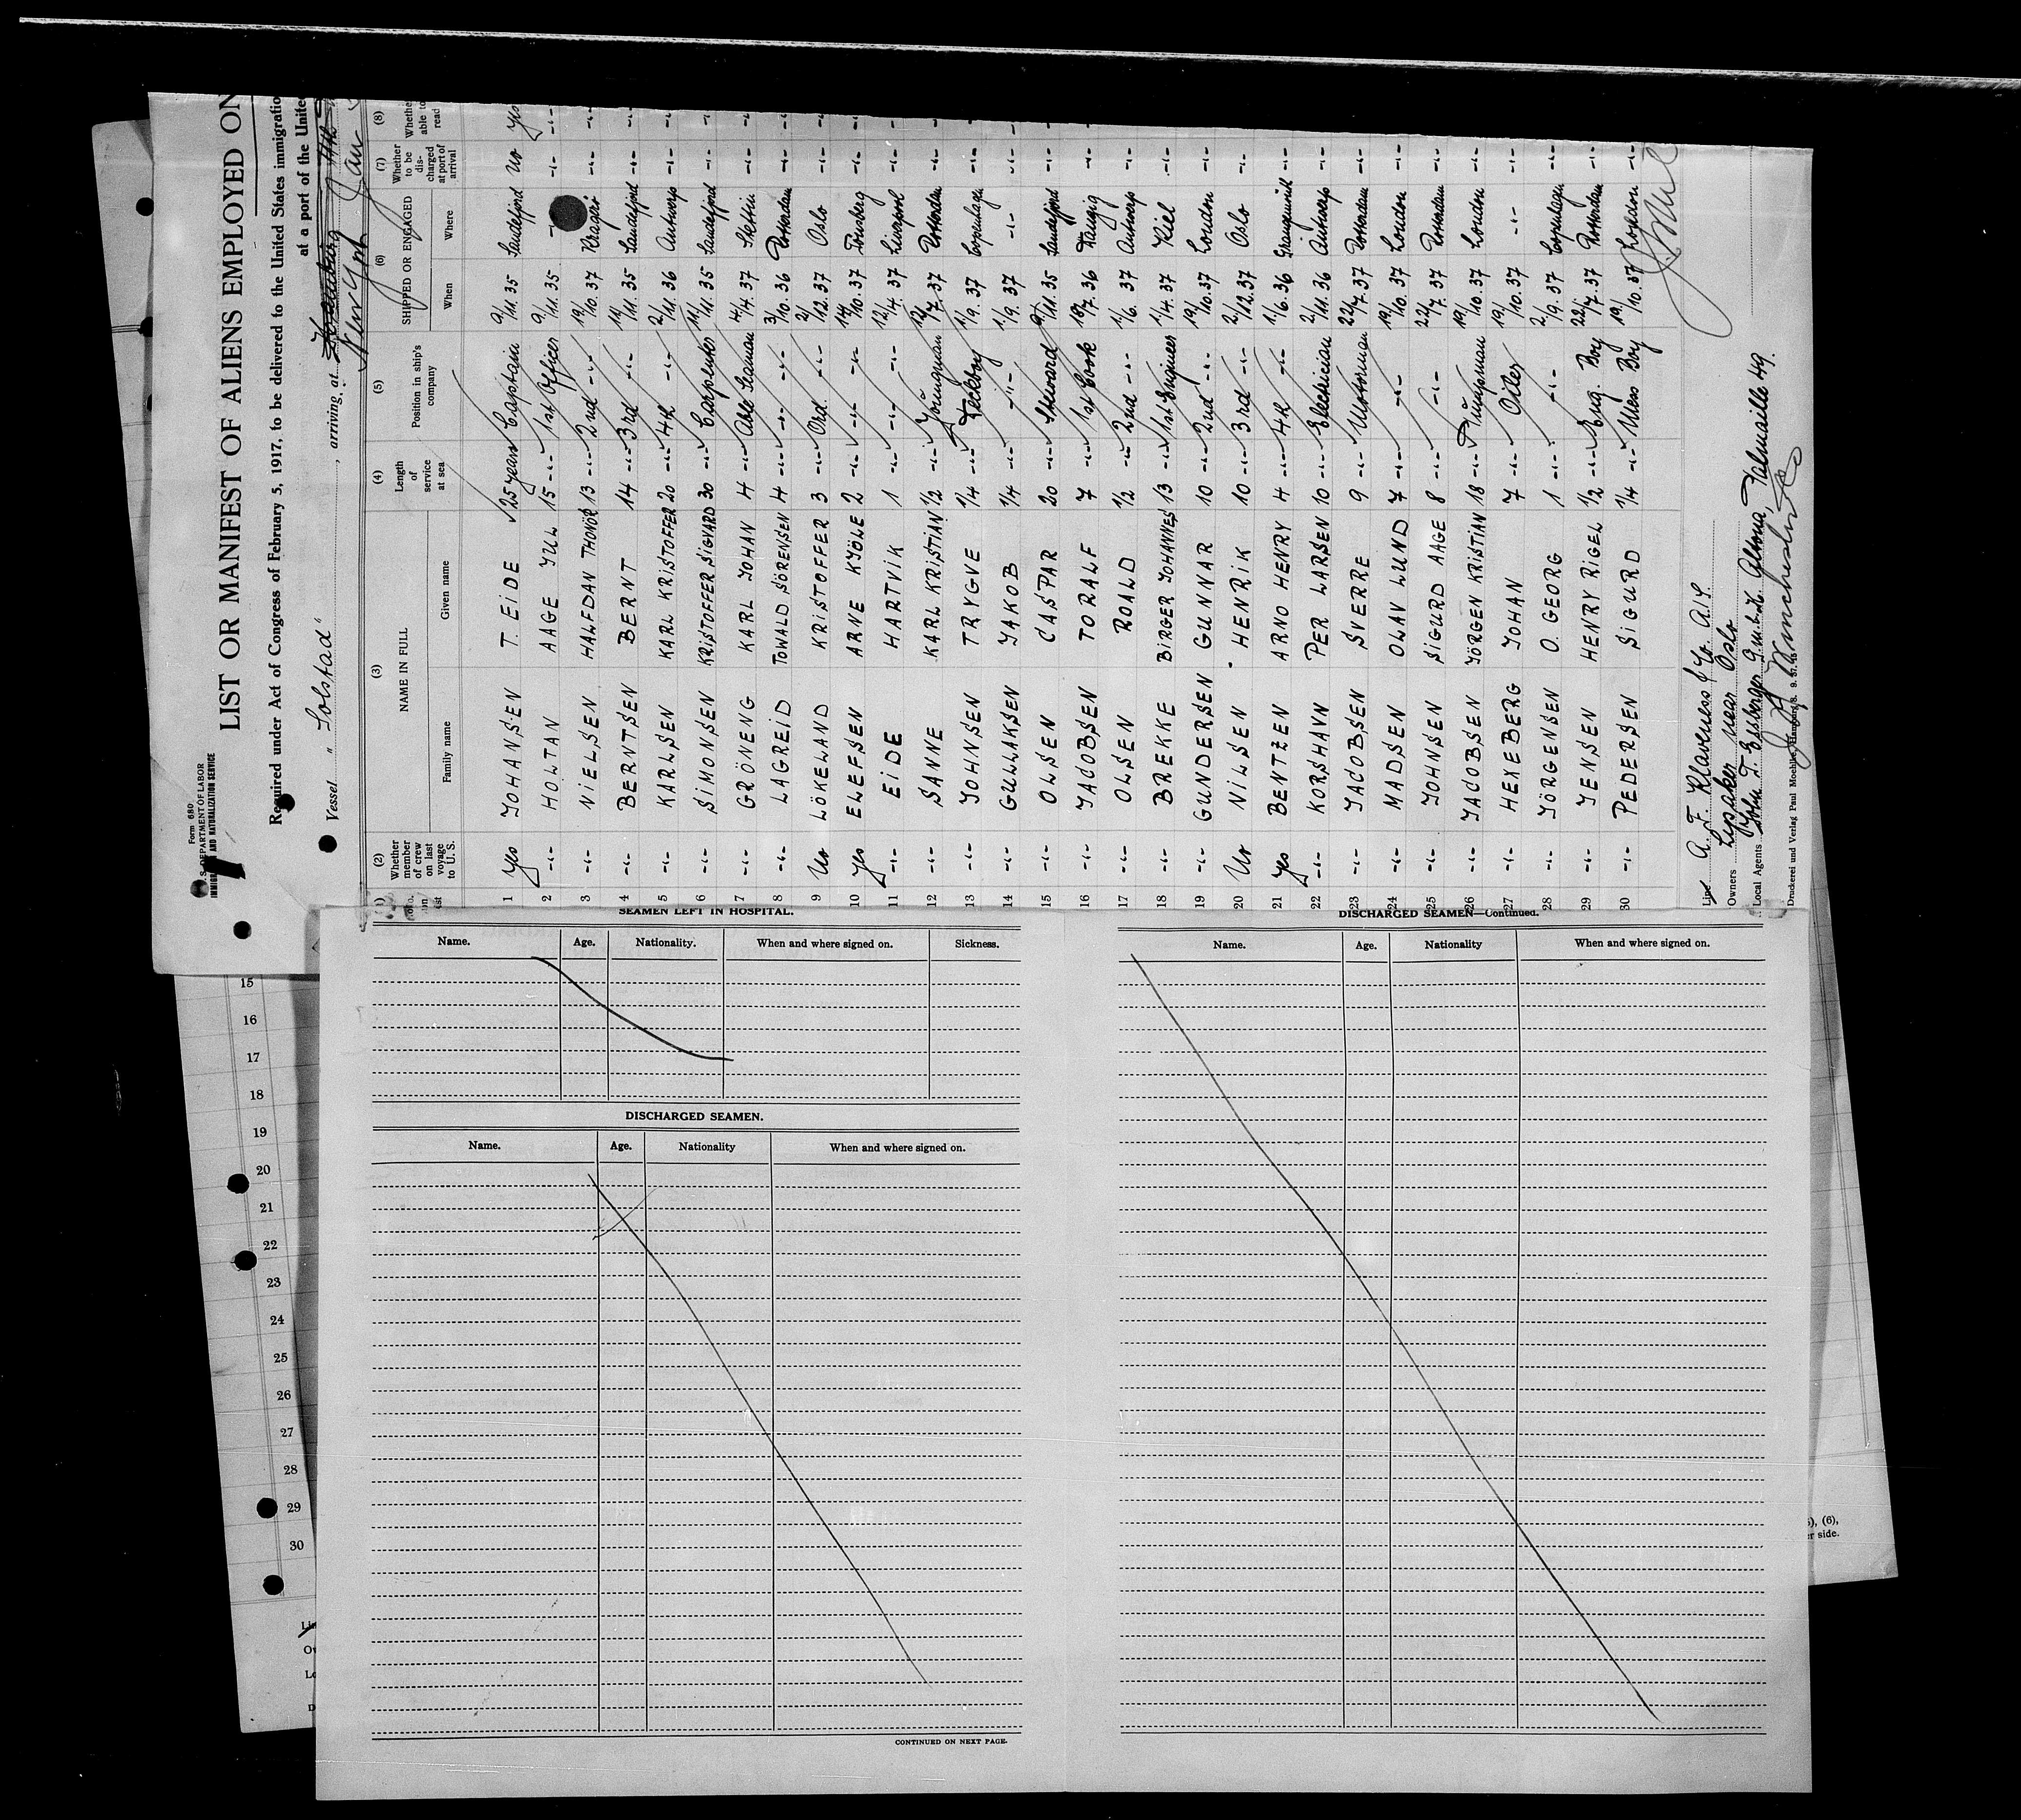 Form 680
U. S. DEPARTMENT OF LABOR
IMMIGRATION AND NATURALIZATION SERVICE
LIST OR MANIFEST OF ALIENS EMPLOYED ON
Required under Act of Congress of February 5, 1917, to be delivered to the United States immigratio
at a port of the United
Vessel "Solstad", arriving at New York Jan
(2) Whether member of crew on last voyage to U. S. (3) NAME IN FULL Family name Given name (4) Length of service at sea (5) Position in ship's company (6) SHIPPED OR ENGAGED When Where (7) Whether to be discharged at port of arrival (8) Whether able to read
1 Yes JOHANSEN T. EIDE 25 years Captain 9/11.35 Sandefjord No yes
2 -"- HOLTAN AAGE JUL 15 -"- 1st Officer 9/11.35 -"- -"-
3 -"- NIELSEN HALFDAN THONÖR 13 -"- 2nd -"- 19/10.37 Kragerö -"- -"-
4 -"- BERNTSEN BERNT 14 -"- 3rd -"- 11/11.35 Sandefjord -"- -"-
5 -"- KARLSEN KARL KRISTOFFER 20 -"- 4th -"- 2/11.36 Antwerp -"- -"-
6 -"- SIMONSEN KRISTOFFER SIGVARD 30 -"- Carpenter 11/11.35 Sandefjord -"- -"-
7 -"- GRÖNENG KARL JOHAN 4 -"- Able Seaman 4/4.37 Stettin -"- -"-
8 -"- LAGREID TOWALD SÖRENSEN 4 -"- -"- 3/10.36 Rotterdam -"- -"-
9 No LÖKELAND KRISTOFFER 3 -"- Ord. -"- 2/12.37 Oslo -"- -"-
10 Yes ELEFSEN ARNE KJÖLE 2 -"- -"- 14/10.37 Tönsberg -"- -"-
11 -"- EIDE HARTVIK 1 -"- -"- 12/4.37 Liverpool -"- -"-
12 -"- SANNE KARL KRISTIAN 1/2 -"- Youngman 12/7.37 Rotterdam -"- -"-
13 -"- JOHNSEN TRYGVE 1/4 -"- Deckboy 1/9.37 Copenhagen -"- -"-
14 -"- GULLAKSEN JAKOB 1/4 -"- -"- 1/9.37 -"- -"- -"-
15 -"- OLSEN CASPAR 20 -"- Steward 9/11.35 Sandefjord -"- -"-
16 -"- JACOBSEN TORALF 7 -"- 1st Cook 18/7.36 Danzig -"- -"-
17 -"- OLSEN ROALD 1/2 -"- 2nd -"- 1/6.37 Antwerp -"- -"-
18 -"- BREKKE BIRGER JOHANNES 13 -"- 1st Engineer 1/4.37 Kiel -"- -"-
19 -"- GUNDERSEN GUNNAR 10 -"- 2nd -"- 19/10.37 London -"- -"-
20 No NILSEN HENRIK 10 -"- 3rd -"- 2/12.37 Oslo -"- -"-
21 Yes BENTZEN ARNO HENRY 4 -"- 4th -"- 1/6.36 -"- -"-
22 -"- KORSHAVN PER LARSEN 10 -"- Electrician 2/11.36 Antwerp -"- -"-
23 -"- JACOBSEN SVERRE 9 -"- Motorman 22/7.37 Rotterdam -"- -"-
24 -"- MADSEN OLAV LUND 7 -"- -"- 19/10.37 London -"- -"-
25 -"- JOHNSEN SIGURD AAGE 8 -"- -"- 22/7.37 Rotterdam -"- -"-
26 -"- JACOBSEN JÖRGEN KRISTIAN 18 -"- Pumpman 19/10.37 London -"- -"-
27 -"- HEXEBERG JOHAN 7 -"- Oiler 19/10.37 -"- -"- -"-
28 -"- JÖRGENSEN O. GEORG 1 -"- -"- 2/9.37 Copenhagen -"- -"-
29 -"- JENSEN HENRY RIGEL 1/2 -"- Eng. Boy 22/7.37 Rotterdam -"- -"-
30 -"- PEDERSEN SIGURD 1/4 -"- Mess Boy 19/10.37 London -"- -"-
Line A. F. Klaveness & Co. A/S.
Owners Lysaker near Oslo
Local Agents John T. Essberger G.m.b.H. Altona, Palmaille 49.
Druckerei und Verlag Paul Moehlke, Hamburg
SEAMEN LEFT IN HOSPITAL.
Name. Age. Nationality. When and where signed on. Sickness.
DISCHARGED SEAMEN.
Name. Age. Nationality When and where signed on.
CONTINUED ON NEXT PAGE.
DISCHARGED SEAMEN—Continued.
Name. Age. Nationality When and where signed on.
15
16
17
18
19
20
21
22
23
24
25
26
27
28
29
30
(6),
side.